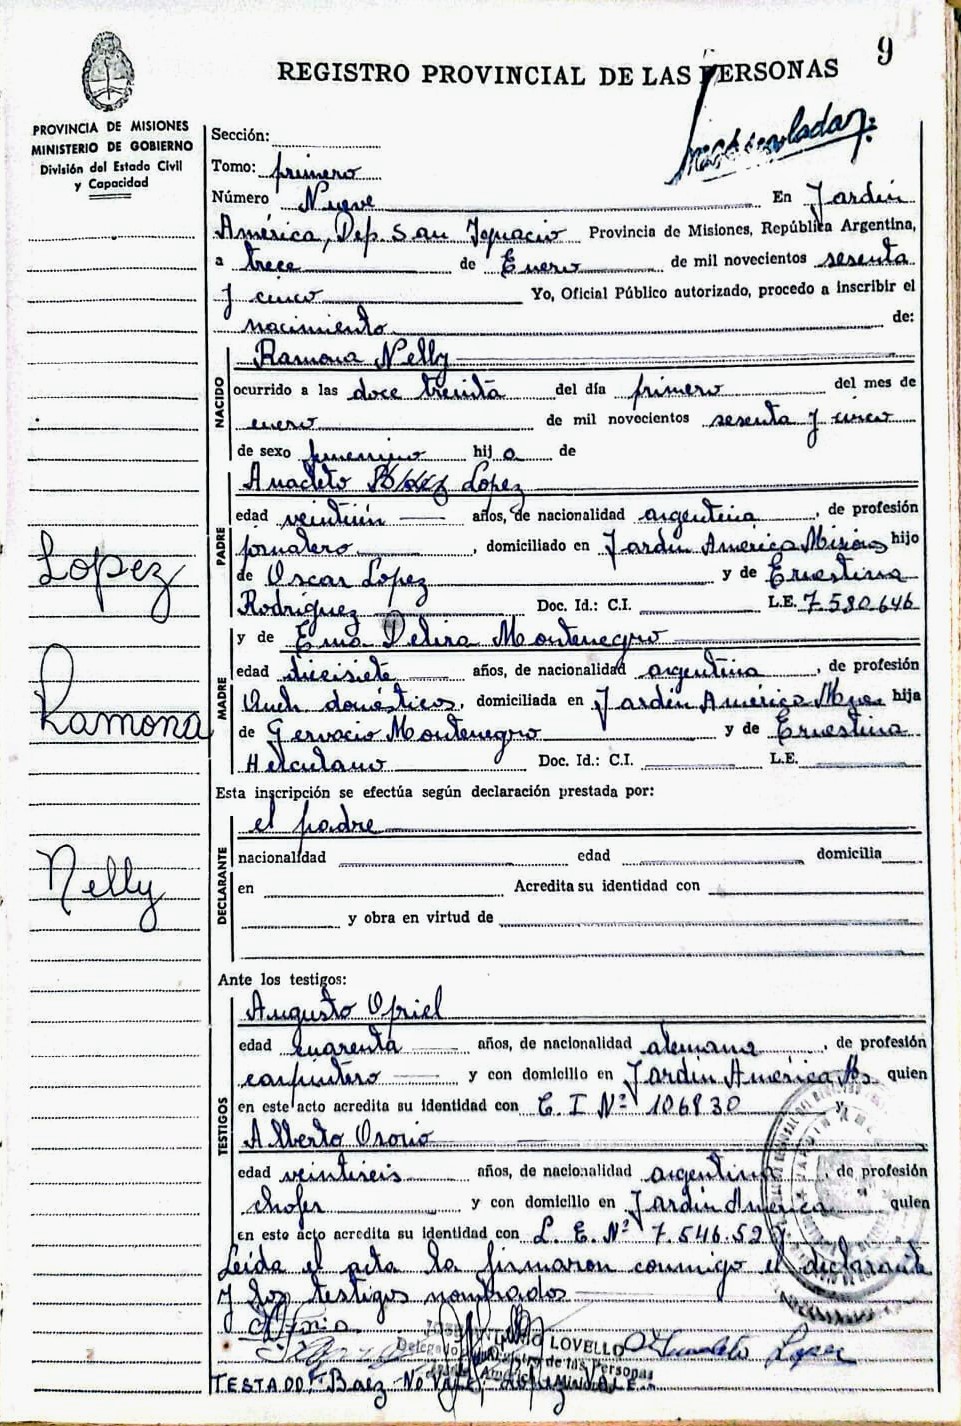 9
REGISTRO PROVINCIAL DE LAS PERSONAS
PROVINCIA DE MISIONES
MINISTERIO DE GOBIERNO
División del Estado Civil
y Capacidad
Sección:
Tomo: primero
Número Nueve En Jardín
América, Dep. San Ignacio Provincia de Misiones, República Argentina,
a trece de Enero de mil novecientos sesenta
y cinco Yo, Oficial Público autorizado, procedo a inscribir el
nacimiento de:
NACIDO
Ramona Nelly
ocurrido a las doce treinta del día primero del mes de
enero de mil novecientos sesenta y cinco
de sexo femenino hij a de
PADRE
Anacleto Báez Lopez
edad veintiún años, de nacionalidad argentina, de profesión
jornalero, domiciliado en Jardín América Misiones hijo
de Oscar Lopez y de Ernestina
Rodríguez Doc. Id.: C.I. L.E. 7.580.646
Lopez
MADRE
y de Ema Delira Montenegro
edad diecisiete años, de nacionalidad argentina, de profesión
Queh. domésticos, domiciliada en Jardín América Mnes hija
de Gervacio Montenegro y de Ernestina
Herculano Doc. Id.: C.I. L.E.
Ramona
Esta inscripción se efectúa según declaración prestada por:
DECLARANTE
el padre
nacionalidad edad domicilia
en Acredita su identidad con
y obra en virtud de
Nelly
Ante los testigos:
TESTIGOS
Augusto Opriel
edad cuarenta años, de nacionalidad alemana, de profesión
carpintero y con domicilio en Jardín América Ms. quien
en este acto acredita su identidad con C. I Nº 106830 y
Alberto Osorio
edad veintiseis años, de nacionalidad argentina, de profesión
chofer y con domicilio en Jardín América quien
en este acto acredita su identidad con L. E. Nº 7.546.52
Leída el acta la firmaron conmigo el declarante
y los testigos nombrados
LOVELLO
Delegado de las Personas
Anacleto Lopez
TESTADO: Baez NO VALE. Lopez VALE.